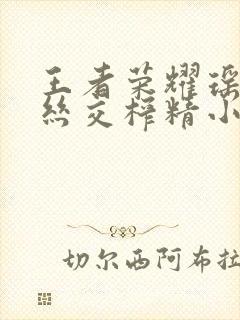 王者荣耀瑶
丝交榨精小
切尔西阿布拉